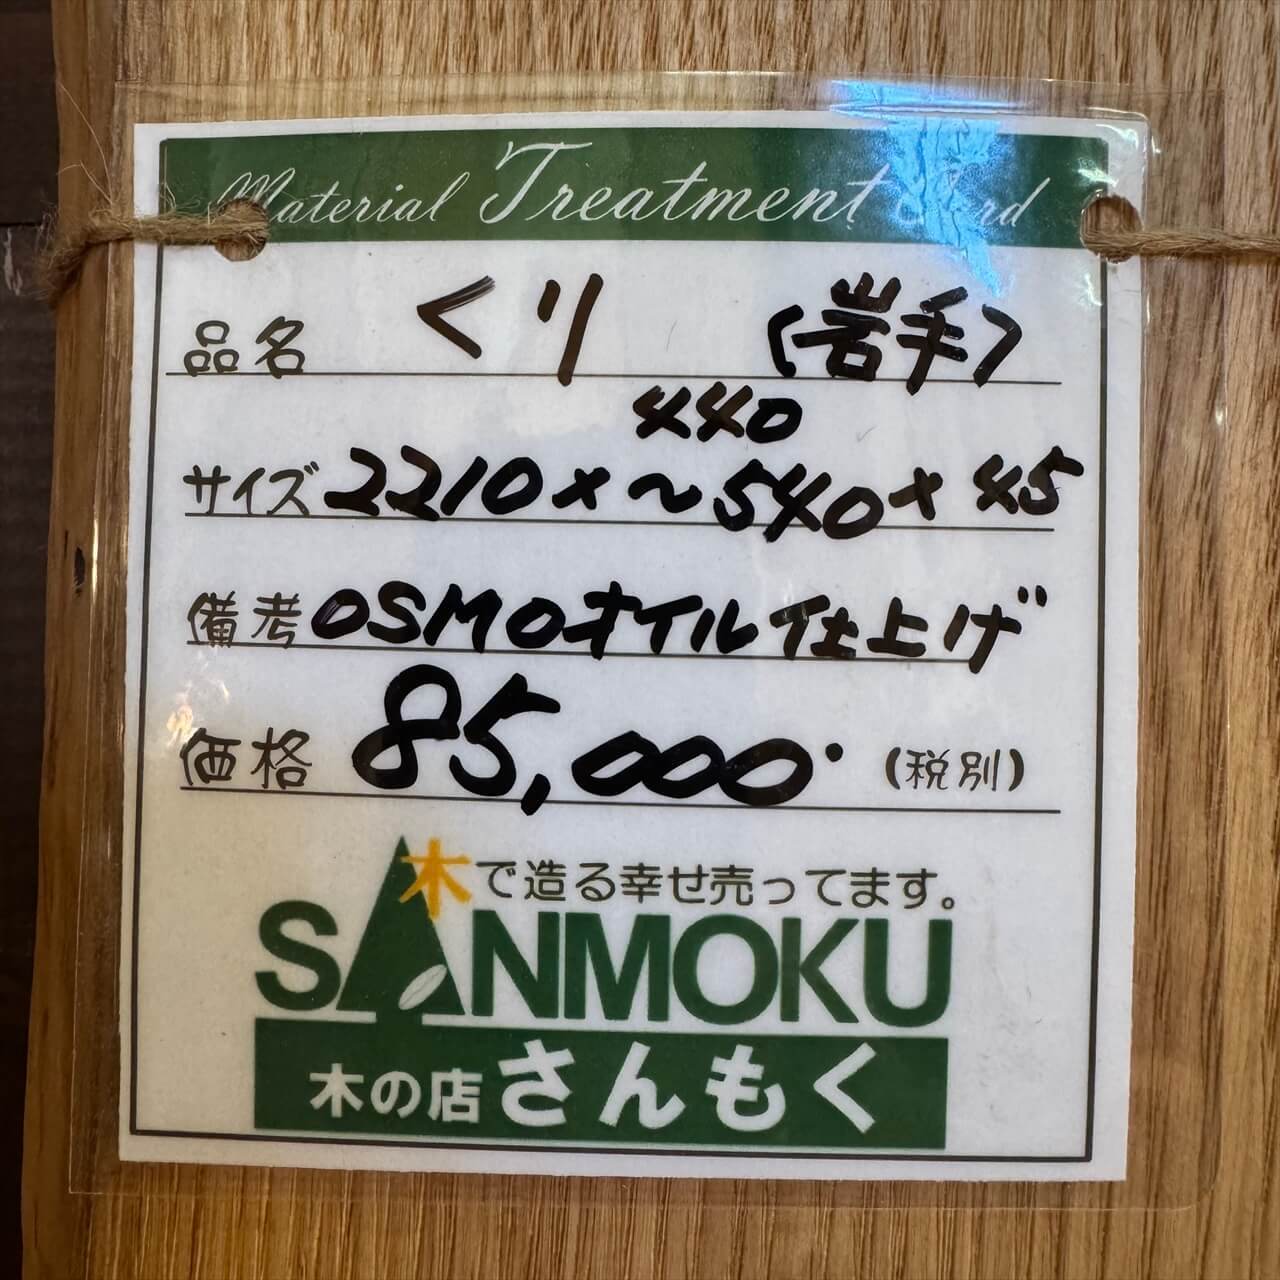 Material Treatment Card
品名 くり (岩手)
440
サイズ 2210×~540×45
備考 OSMOオイル仕上げ
価格 85,000. (税別)
木で造る幸せ売ってます。
SANMOKU
木の店 さんもく